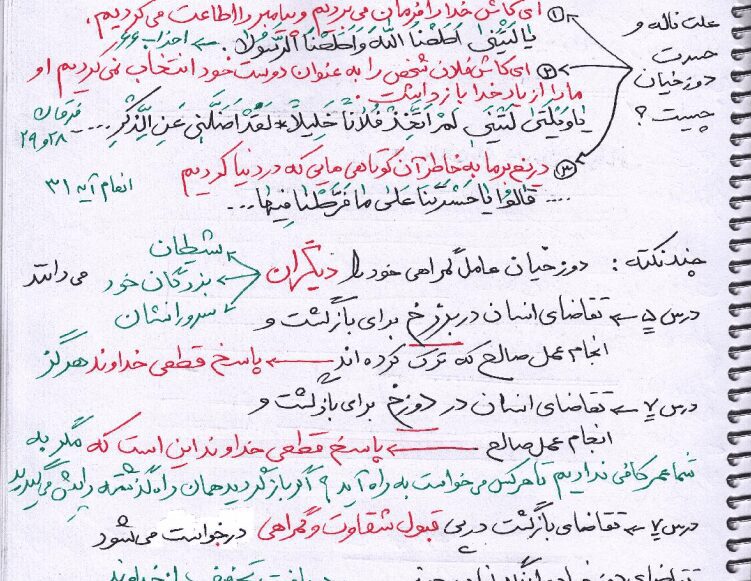 علت ناله و
حسرت
دوزخیان
چیست؟
① ای کاش خدا را فرمان می بردیم و پیامبر را اطاعت می کردیم.
یا لَیْتَنٰی اَطَعْنَا اللهَ وَ اَطَعْنَا الرَّسُولا. ← احزاب ۶۶
② ای کاش فلان شخص را به عنوان دوست خود انتخاب نمی کردیم او
ما را از یاد خدا باز داشت.
یاوَیْلَتیٰ لَیْتَنٰی لَمْ اَتَّخِذْ فُلاناً خَلیلاً * لَقَدْ اَضَلَّنی عَنِ الذِّکْرِ .... فرقان ۲۸ و ۲۹
③ دریغ بر ما به خاطر آن کوتاهی هایی که در دنیا کردیم
.... قالُوا یا حَسْرَتَنا عَلیٰ ما فَرَّطْنا فیها... انعام آیه ۳۱
چند نکته: دوزخیان عامل گمراهی خود را دیگران ← شیطان
بزرگان خود
سرورانشان
می دانند
درس ۵ ← تقاضای انسان در برزخ برای بازگشت و
انجام عمل صالح که ترک کرده اند ← پاسخ قطعی خداوند هرگز
درس ۷ ← تقاضای انسان در دوزخ برای بازگشت و
انجام عمل صالح ← پاسخ قطعی خداوند این است که مگر به
شما عمر کافی ندادیم تا هرکس می خواست به راه آید؟ اگر بازگردید همان راه گذشته را پیش می گیرید
درس ۷ ← تقاضای بازگشت در پی قبول شقاوت و گمراهی درخواست می شود
تقاضای